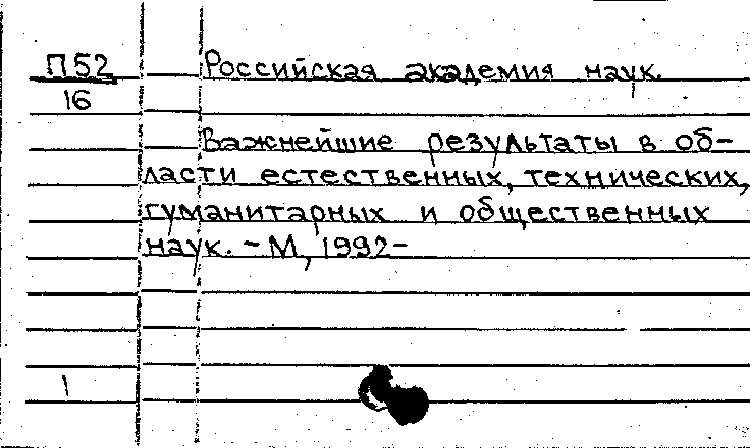 П52 Российская академия наук.
16
Важнейшие результаты в об-
ласти естественных, технических,
гуманитарных и общественных
наук. - М, 1992-
1